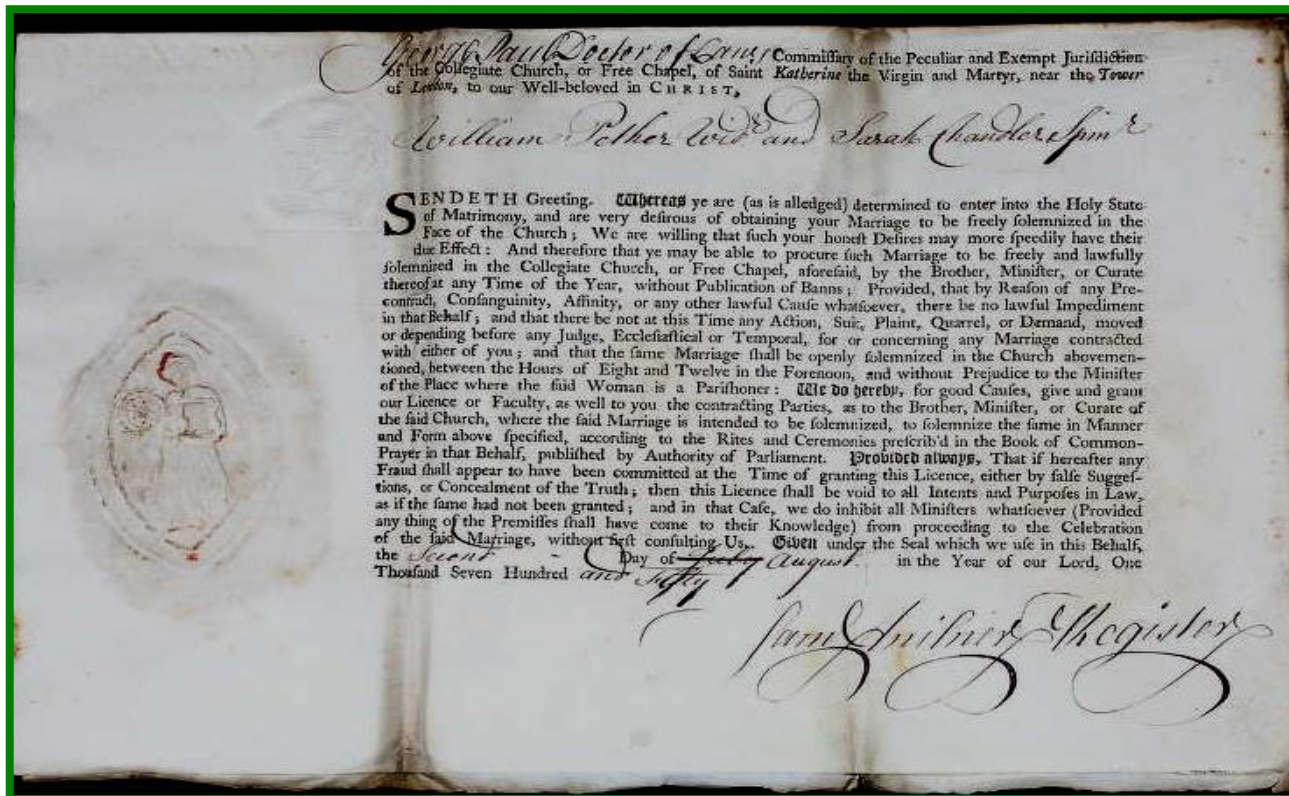 George Paul Doctor of Laws Commiſſary of the Peculiar and Exempt Juriſdiction
of the Collegiate Church, or Free Chapel, of Saint Katherine the Virgin and Martyr, near the Tower
of London, to our Well-beloved in CHRIST,
William Pether Widr and Sarah Chandler Spinr
SENDETH Greeting. Whereas ye are (as is alledged) determined to enter into the Holy State
of Matrimony, and are very deſirous of obtaining your Marriage to be freely ſolemnized in the
Face of the Church; We are willing that ſuch your honeſt Deſires may more ſpeedily have their
due Effect: And therefore that ye may be able to procure ſuch Marriage to be freely and lawfully
ſolemnized in the Collegiate Church, or Free Chapel, aforeſaid, by the Brother, Miniſter, or Curate
thereof at any Time of the Year, without Publication of Banns; Provided, that by Reaſon of any Pre-
contract, Conſanguinity, Affinity, or any other lawful Cauſe whatſoever, there be no lawful Impediment
in that Behalf; and that there be not at this Time any Action, Suit, Plaint, Quarrel, or Demand, moved
or depending before any Judge, Eccleſiaſtical or Temporal, for or concerning any Marriage contracted
with either of you; and that the ſame Marriage ſhall be openly ſolemnized in the Church abovemen-
tioned, between the Hours of Eight and Twelve in the Forenoon, and without Prejudice to the Miniſter
of the Place where the ſaid Woman is a Pariſhoner: We do hereby, for good Cauſes, give and grant
our Licence or Faculty, as well to you the contracting Parties, as to the Brother, Miniſter, or Curate of
the ſaid Church, where the ſaid Marriage is intended to be ſolemnized, to ſolemnize the ſame in Manner
and Form above ſpecified, according to the Rites and Ceremonies preſcrib'd in the Book of Common-
Prayer in that Behalf, publiſhed by Authority of Parliament. Provided always, That if hereafter any
Fraud ſhall appear to have been committed at the Time of granting this Licence, either by falſe Suggeſ-
tions, or Concealment of the Truth; then this Licence ſhall be void to all Intents and Purpoſes in Law,
as if the ſame had not been granted; and in that Caſe, we do inhibit all Miniſters whatſoever (Provided
any thing of the Premiſſes ſhall have come to their Knowledge) from proceeding to the Celebration
of the ſaid Marriage, without firſt conſulting Us. Given under the Seal which we uſe in this Behalf,
the Second - Day of July August. in the Year of our Lord, One
Thouſand Seven Hundred and Fifty
Sam Register